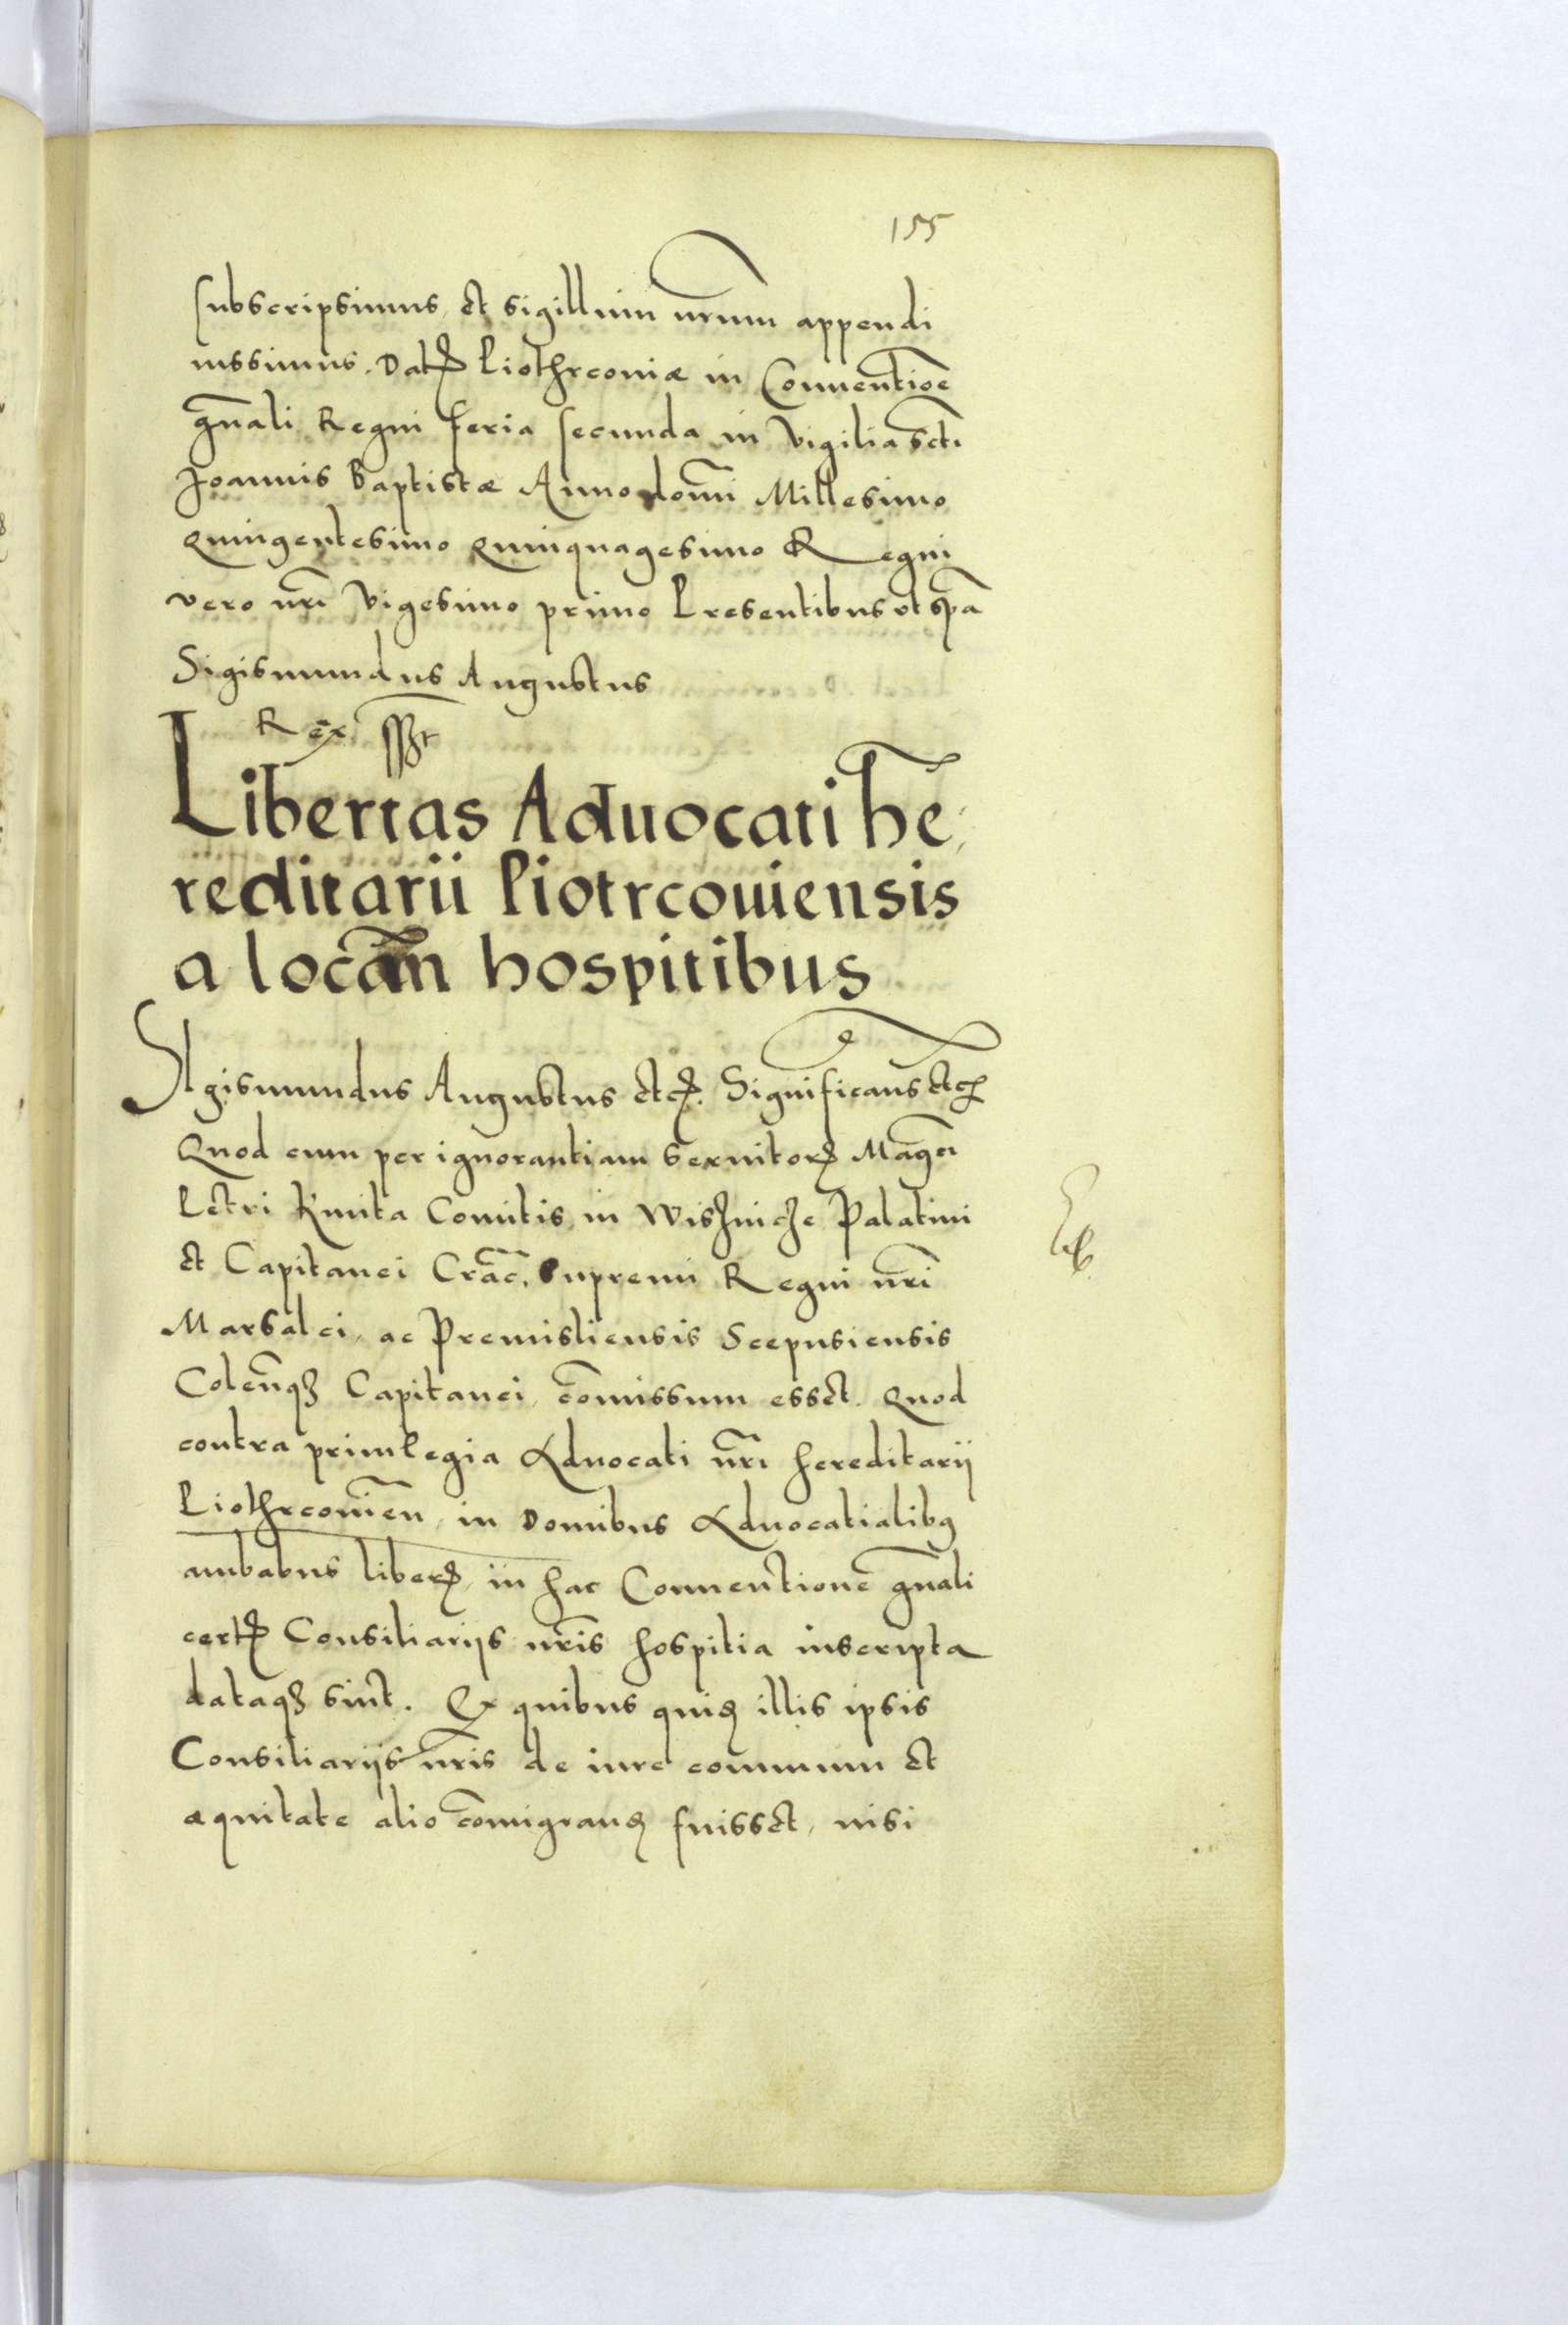 155
subscripsimus, et sigillum nrum appendi
iussimus. Dat Piothrcouiæ in Conuentioe
gnali Regni feria secunda in vigilia scti
Joannis Baptistæ Anno domi Millesimo
Quingentesimo Quinquagesimo Regni
vero nri vigesimo primo Presentibus ut spa
Sigismundus Augustus
Rex sspt
Libertas Aduocati he,
reditarii Piotrcouiensis
a locan hospitibus
Sigismundus Augustus etc. Significamus etc
Quod cum per ignorantiam seruitor Magci
Petri Kmita Comitis in Wisznicze Palatini
et Capitanei Crac. Supremi Regni nri
Marsalci, ac Premisliensis Scepusiensis
Colenqz Capitanei, comissum esset. Quod
contra priuilegia Aduocati nri hereditarij
Piothrcouien, in Domibus Aduocatialibq
ambabus liber, in hac Conuentione gnali
cert Consiliarijs nris hospitia inscripta
dataqz sint. Ex quibus illis ipsis
Consiliarijs nris de iure communi et
æquitate alio comigrand fuisset, nisi